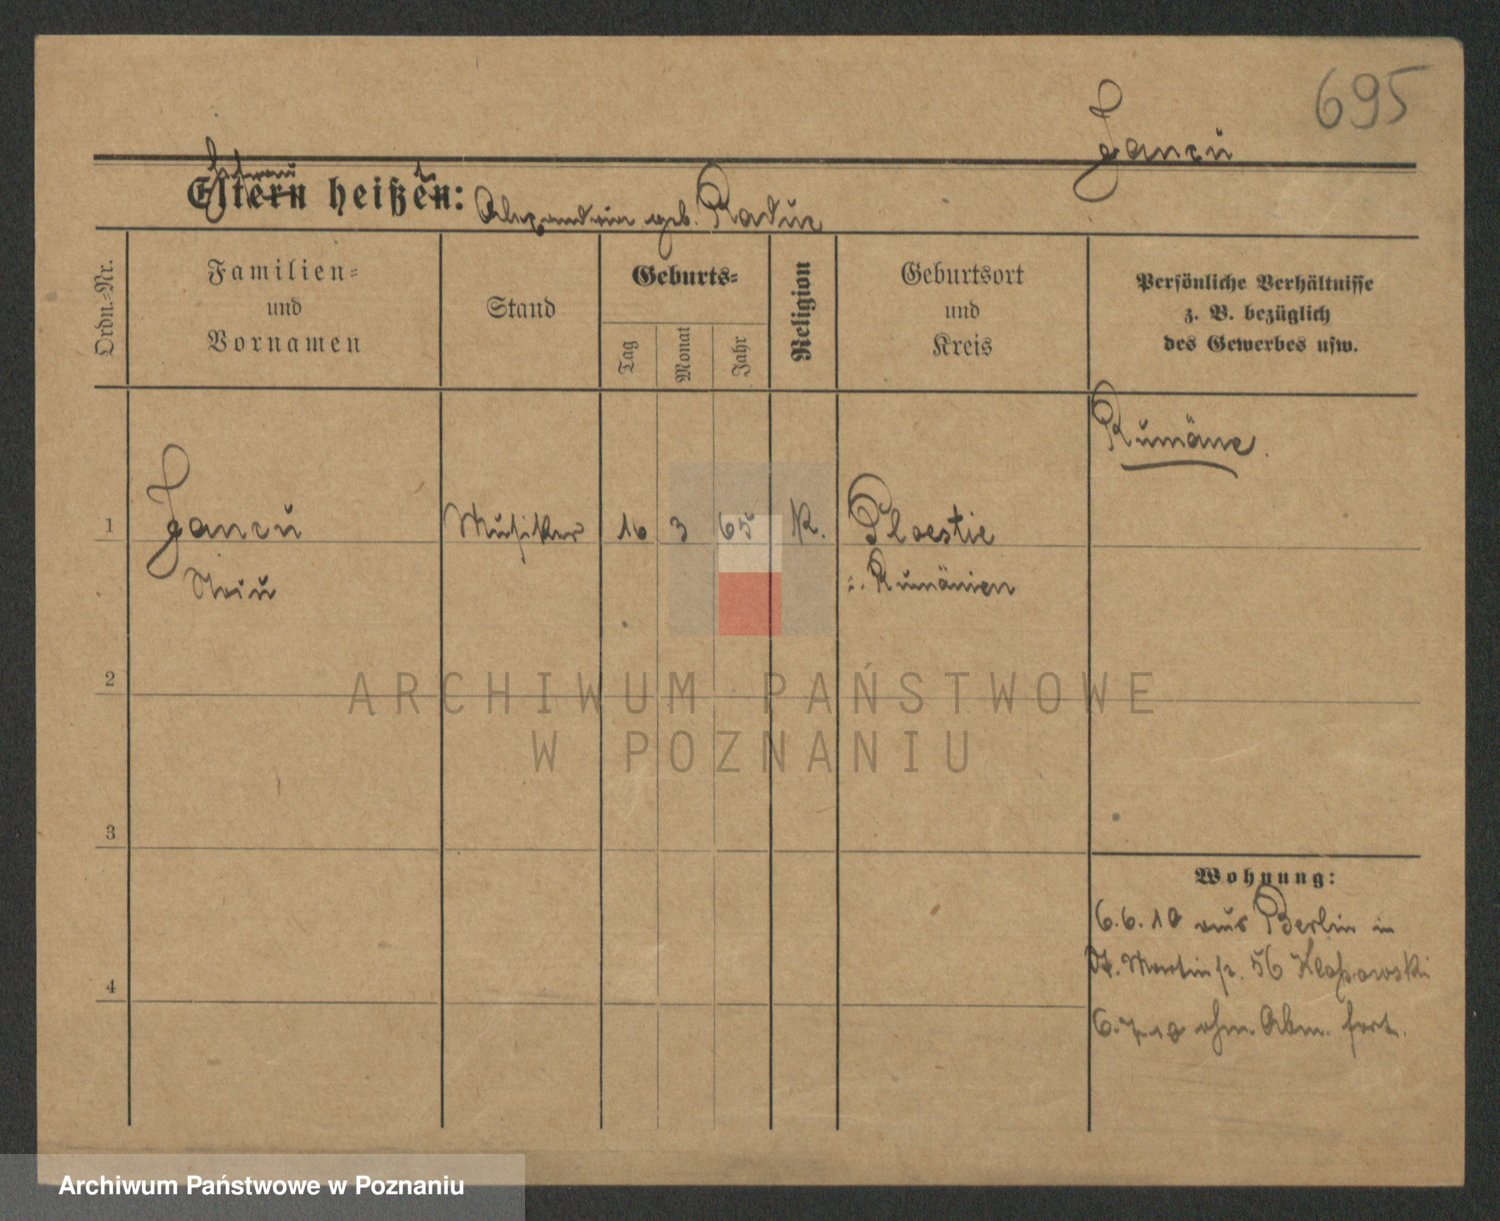 695
Jancu
Ehefrau
Eltern heißen: Alexandria geb. Raduc
Ordn.-Nr.
Familien-
und
Vornamen
Stand
Geburts-
Tag
Monat
Jahr
Religion
Geburtsort
und
Kreis
Persönliche Verhältnisse
z. B. bezüglich
des Gewerbes usw.
Rumäne.
1 Jancu Musiker 16 3 65 K. Ploestie
Rumänien
2
3
4
Wohnung:
6.6.10 aus Berlin in
St. Martinstr. 56
6.7.10 ohne Abm. fort.
ARCHIWUM PAŃSTWOWE
W POZNANIU
Archiwum Państwowe w Poznaniu